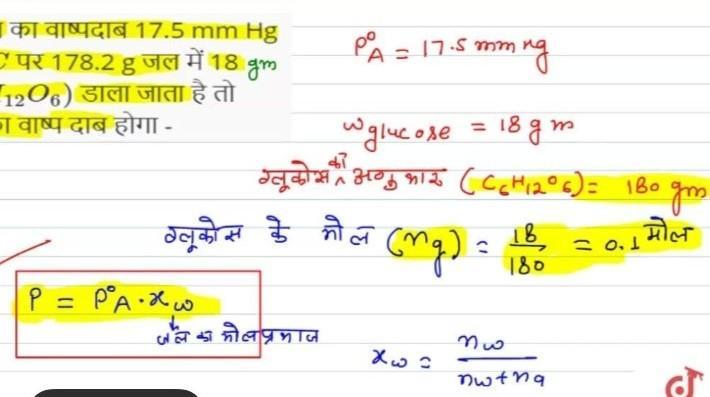 का वाष्पदाब 17.5 mm Hg
C पर 178.2 g जल में 18 gm
12O6) डाला जाता है तो
का वाष्प दाब होगा -
P°A = 17.5 mm Hg
W glucose = 18 gm
ग्लूकोस का अणुभार (C6H12O6) = 180 gm
ग्लूकोस के मोल (ng) = 18/180 = 0.1 मोल
P = P°A · xw
जल का मोलप्रभाज
xw = nw/nw+ng